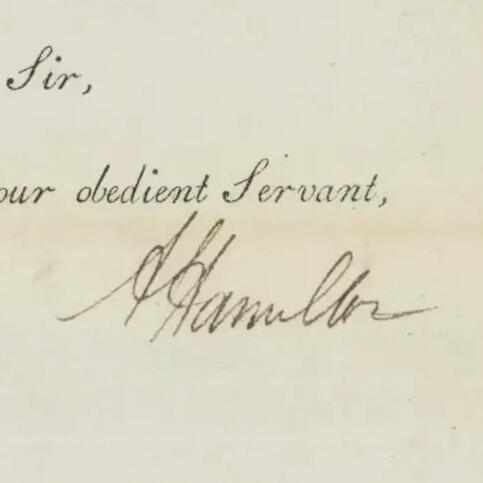 Sir,
our obedient Servant,
A Hamilton